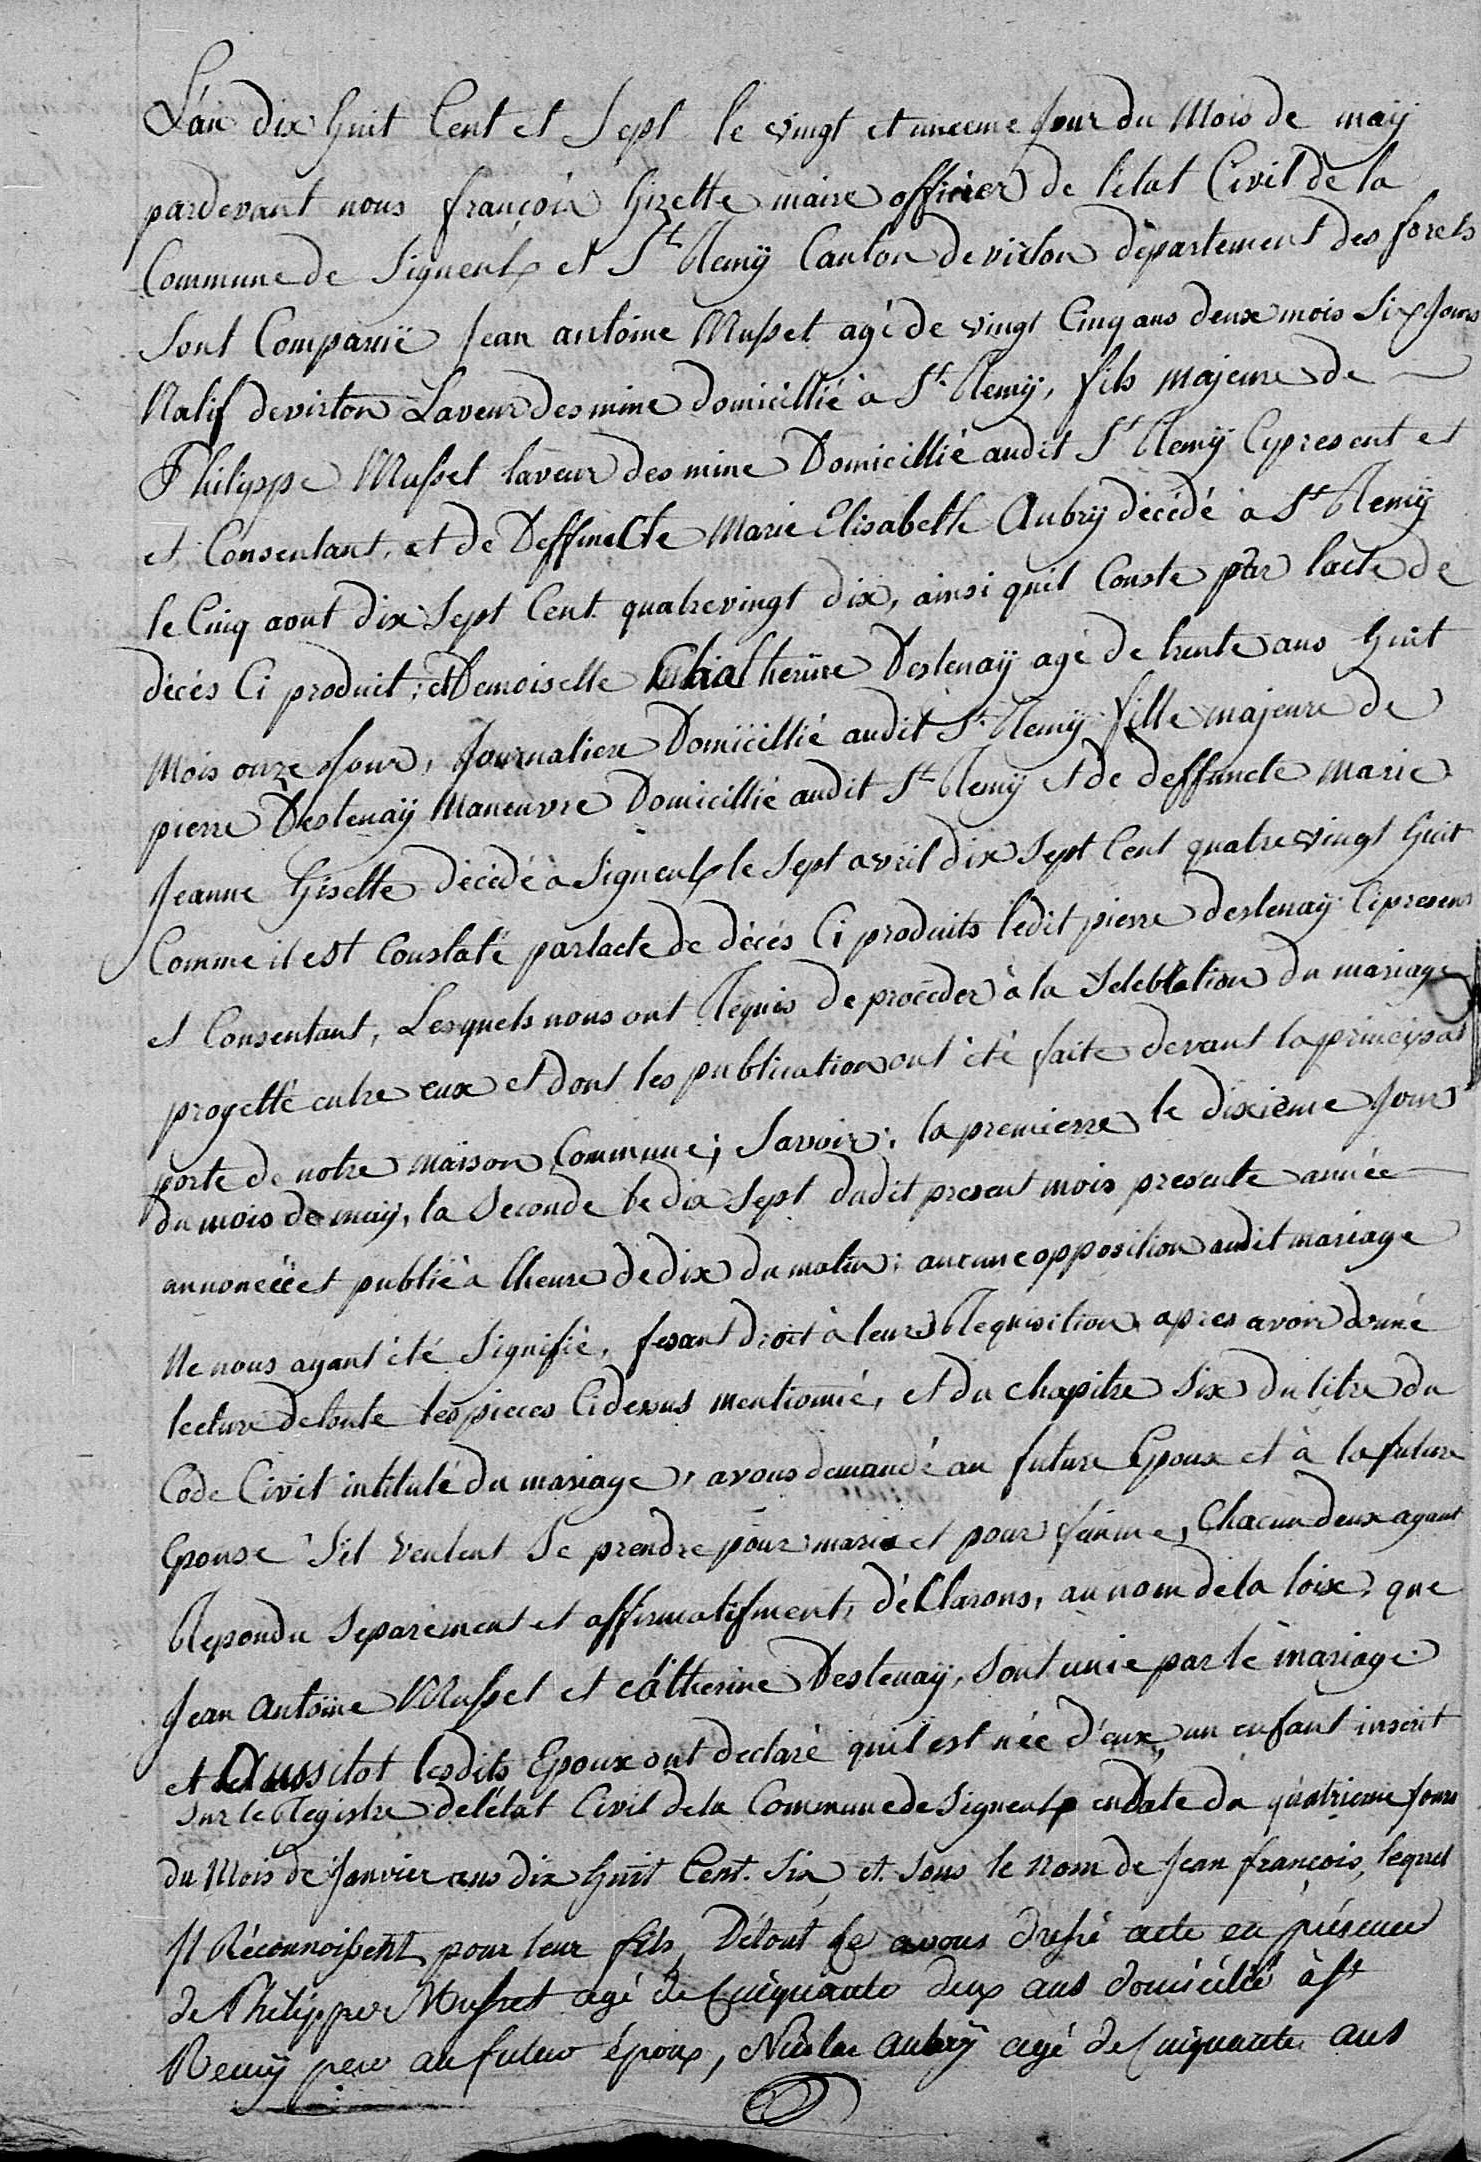 L'an dix huit Cent et Sept le vingt et unieme Jour du Mois de maÿ
pardevant nous françois Gizette maire officier de l'etat Civil de la
Commune de Signeulx et St Remÿ Canton de virton departement des forets
Sont Comparuë Jean antoine Musset agé de vingt Cinq ans deux mois Six Jours
Natif de virton Laveur des mine domicillié à St Remÿ, fils majeure de
Philippe Musset laveur des mine Domicillié audit St Remÿ Cypresent et
et Consentant, et de Deffuncte Marie Elisabethe Aubrÿ décédé à St Remÿ
le Cinq aout dix Sept Cent quatrevingt dix, ainsi quil Conste par lacte de
décès Ci produit; et Demoiselle Chatherine Destenaÿ agé de trente ans huit
Mois onze Jour, Journaliere Domicillié audit St Remÿ fille majeure de
pierre Destenaÿ Maneuvre Domicillié audit St Remÿ et de deffuncte Marie
Jeanne Gisette décédé à Signeulx le Sept avril dix Sept Cent quatre vingt huit
Comme il est Constaté par lacte de décès Ci produits ledit pierre destenaÿ Cipresent
et Consentant, Lesquels nous ont Requis de procéder à la Selebration du mariage
progetté entre eux et dont les publication ont été faite devant la principal
porte de notre maison Commune; Savoir; la premierre le dixieme Jour
du mois de maÿ, la Seconde le dix Sept dudit present mois presente année
annoncéë et publié à lheure de dix du matin; aucune opposition audit mariage
Ne nous ayant été Signifié, fesant droit à leurs Requisition apres avoir donné
lecture de toute les pieces Cidessus mentionné, et du chapitre Six du titre du
Code Civil intitulé du mariage, avons demandé au future Epoux et à la future
Epouse S'il veulent Se prendre pour marie et pour femme, Chacun deux ayant
Repondu Separement et affirmatifment, déClarons, au nom de la loix, que
Jean Antoine Musset et Cätherine Destenaÿ, Sont unie par le mariage
et aussitot lesdits Epoux ont declaré qu'il est née d'eux, un enfant inscrit
Sur le Registre de l'état Civil de la Commune de Signeulx en date du quatrieme Jour
du Mois de Janvier ans dix huit Cent. Six, et sous le nom de Jean françois, lequel
Il Réconnoissent pour leur fils, Détout ce avons dressé acte en présence
de Philippe Musset agé de Cinquante deux ans domicilié à St
Remÿ pere au futur époux, Nicolas Aubrÿ agé de Cinquante ans